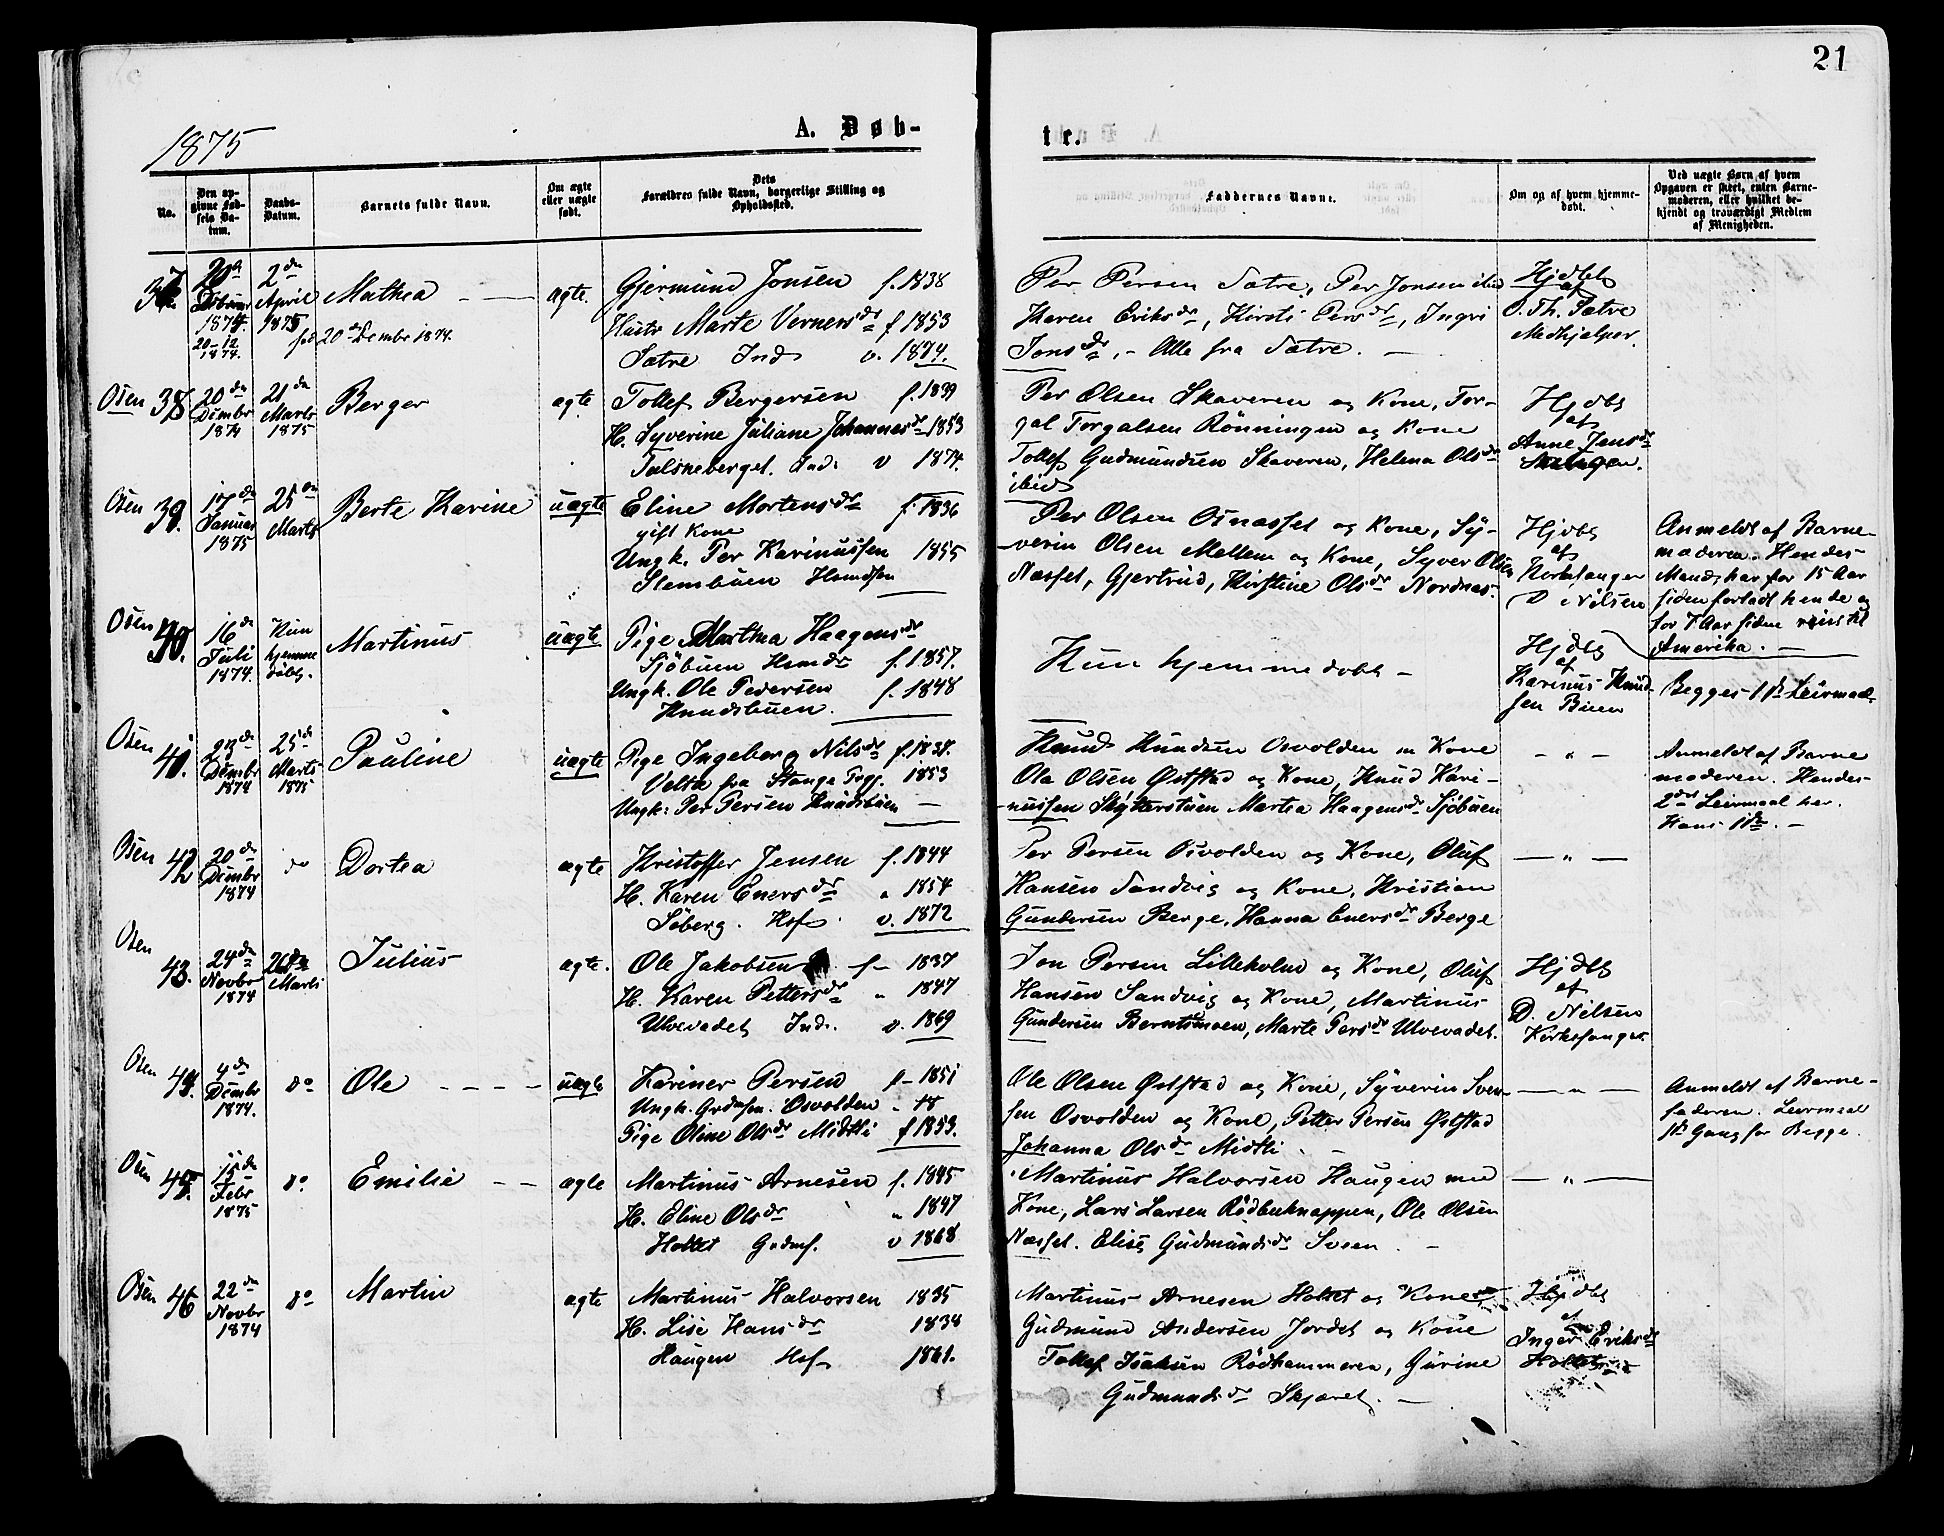 21
1875
A. Døb-
te.
No.
Den op-
givne Fød-
sels Da-
tum.
Daabs-
Datum.
Barnets fulde Navn.
Om ægte
eller uægte
født.
Dets
Forældres fulde Navn, borgerlige Stilling og
Opholdssted.
Faddernes Navne.
Om og af hvem hjemme-
døbt.
Ved uægte Børn af hvem
Opgaven er skeet, enten Barne-
moderen, eller hvilket be-
kjendt og troværdigt Medlem
af Menigheden.
37.
20de
Desbr
1874.
20-12
1874.
2den
April
1875
Mathea
fød 20de Desembr 1874.
ægte.
Gjermund Jonsen f. 1838
Hustr Marte Vernersdr f 1853
Sætre Ind v. 1874.
Per Persen Sætre, Per Jonsen ibid
Karen Eriksdr, Kirsti Persdr, Ingri
Jonsdr, - Alle fra Sætre.
Hjdbt
af
O. Th. Sætre
Medhjelper.
Osen 38
20de
Dcmbr
1874
21de
Marts
1875
Berger
ægte
Tollef Bergersen f. 1839
H. Syverine Juliane Johannesdr 1853
Tulsneberget. Ind. v 1874.
Per Olsen Skaveren og Kone, Tor-
gal Torgalsen Rönningen og Kone
Tollef Gudmundsen Skaveren, Helena Olsdr
ibid
Hjdbt
af
Anne Jensdr
Osen 39.
17de
Januar
1875
25de
Marts
Berte Karine
uægte
Eline Mortensdr f. 1836
gift Kone
Ungk. Per Karinussen 1855
Stenbuen Hsmdsøn
Per Olsen Osnæsset og Kone, Sy-
verin Olsen Mellem og Kone, Syver Olsen
Næsset, Gjertrud, Kirstine Olsdr Nordnæs.
Hjdbt
af
Kirkesanger
D Nilsen
Anmeldt af Barne-
moderen. Hendes
Mand har for 15 Aar
siden forladt hende og
for 7 Aar siden reist til
Amerika.
Osen 40.
16de
Juli
1874.
Kun
hjemme
døbt.
Martinus
uægte
Pige Marthea Haagensdr
Sjöbuen Hsmdr f. 1857.
Ungk. Ole Pedersen f. 1848
Knudsbuen.
Kun hjemmedøbt
Hjdbt
af
Karinus Knud-
sen Buen
Begges 1ste Leiermaal
Osen 41.
23de
Dcmbr
1874
25de
Marts
1875
Pauline
uægte
Pige Ingeborg Nilsdr f. 1838.
Velta fra Stange Prgj. 1853
Ungk: Per Persen Knudsbuen
Knud Knudsen Osvolden m Kone
Ole Olsen Øststad og Kone, Knud Kari-
nussen Skytterstuen Martea Haagensdr Sjöbuen
- " -
Anmeldt af Barne
moderen. Hendes
2det Leiermaal her.
Hans 1ste.
Osen 42
20de
Dcmbr
1874
do
Dortea
ægte
Kristoffer Jensen f. 1844
H. Karen Enersdr " 1854
Söberg. Hsf v. 1872
Per Persen Osvolden og Kone, Oluf
Hansen Sandvig og Kone, Kristian
Gundersen Berge, Hanna Enersdr Berge
- " -
Osen
43.
24de
Novbr
1874
26de
Marts
Julius
ægte.
Ole Jakobsen f- 1837
H. Karen Pettersdr " 1847
Ulvevadet Ind. v. 1869
Jon Persen Lilleholm og Kone, Oluf
Hansen Sandvig og Kone, Martinus
Gundersen Berntsmoen, Marte Persdr Ulvevadet.
Hjdbt
af
D. Nilsen
Kirkesanger
Osen 44.
4de
Dcmbr
1874.
do
Ole
uægte
Kariner Persen f- 1851
Ungk. Grdmsøn. Osvolden
Pige Oline Olsdr Midtli f 1853.
Ole Olsen Øststad og Kone, Syverin Sven-
sen Osvolden og Kone, Petter Persen Øststad
Johanna Olsdr Midtli
- " -
Anmeldt af Barne-
faderen. Leiermaal
1ste Gang for Begge.
Osen 45.
15de
Febr
1875
do
Emilie
ægte
Martinus Arnesen f. 1845
H. Eline Olsdr " 1847
Holtet Grdmf. v 1868
Martinus Halvorsen Haugen med
Kone, Lars Larsen Rödbuknappen, Ole Olsen
Næsset. Elise Gudmundsdr Sveen.
- " -
Osen 46
22de
Novbr
1874
do
Martin
ægte
Martinus Halvorsen 1835
H. Lise Hansdr 1838
Haugen Hsf 1861.
Martinus Arnesen Holtet og Kone
Gudmund Andersen Jordet og Kone
Tollef Isaksen Rödhammeren, Gurine
Gudmundsdr Skjæret.
Hjdbt
af
Inger Eriksdr